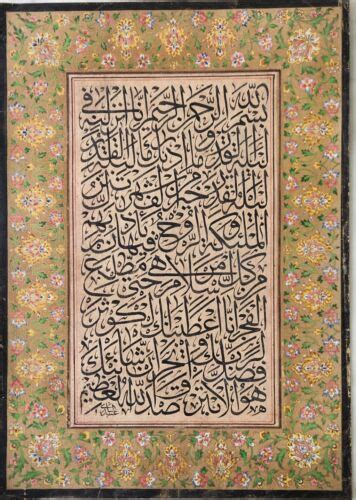 بسم الله الرحمن الرحيم انا انزلناه في
ليلة القدر وما ادريك ما ليلة القدر
ليلة القدر خير من الف شهر تنزل
الملئكة والروح فيها باذن ربهم
من كل امر سلام هي حتى مطلع
الفجر انا اعطيناك الكوثر
فصل لربك وانحر ان شانئك
هو الابتر صدق الله العظيم